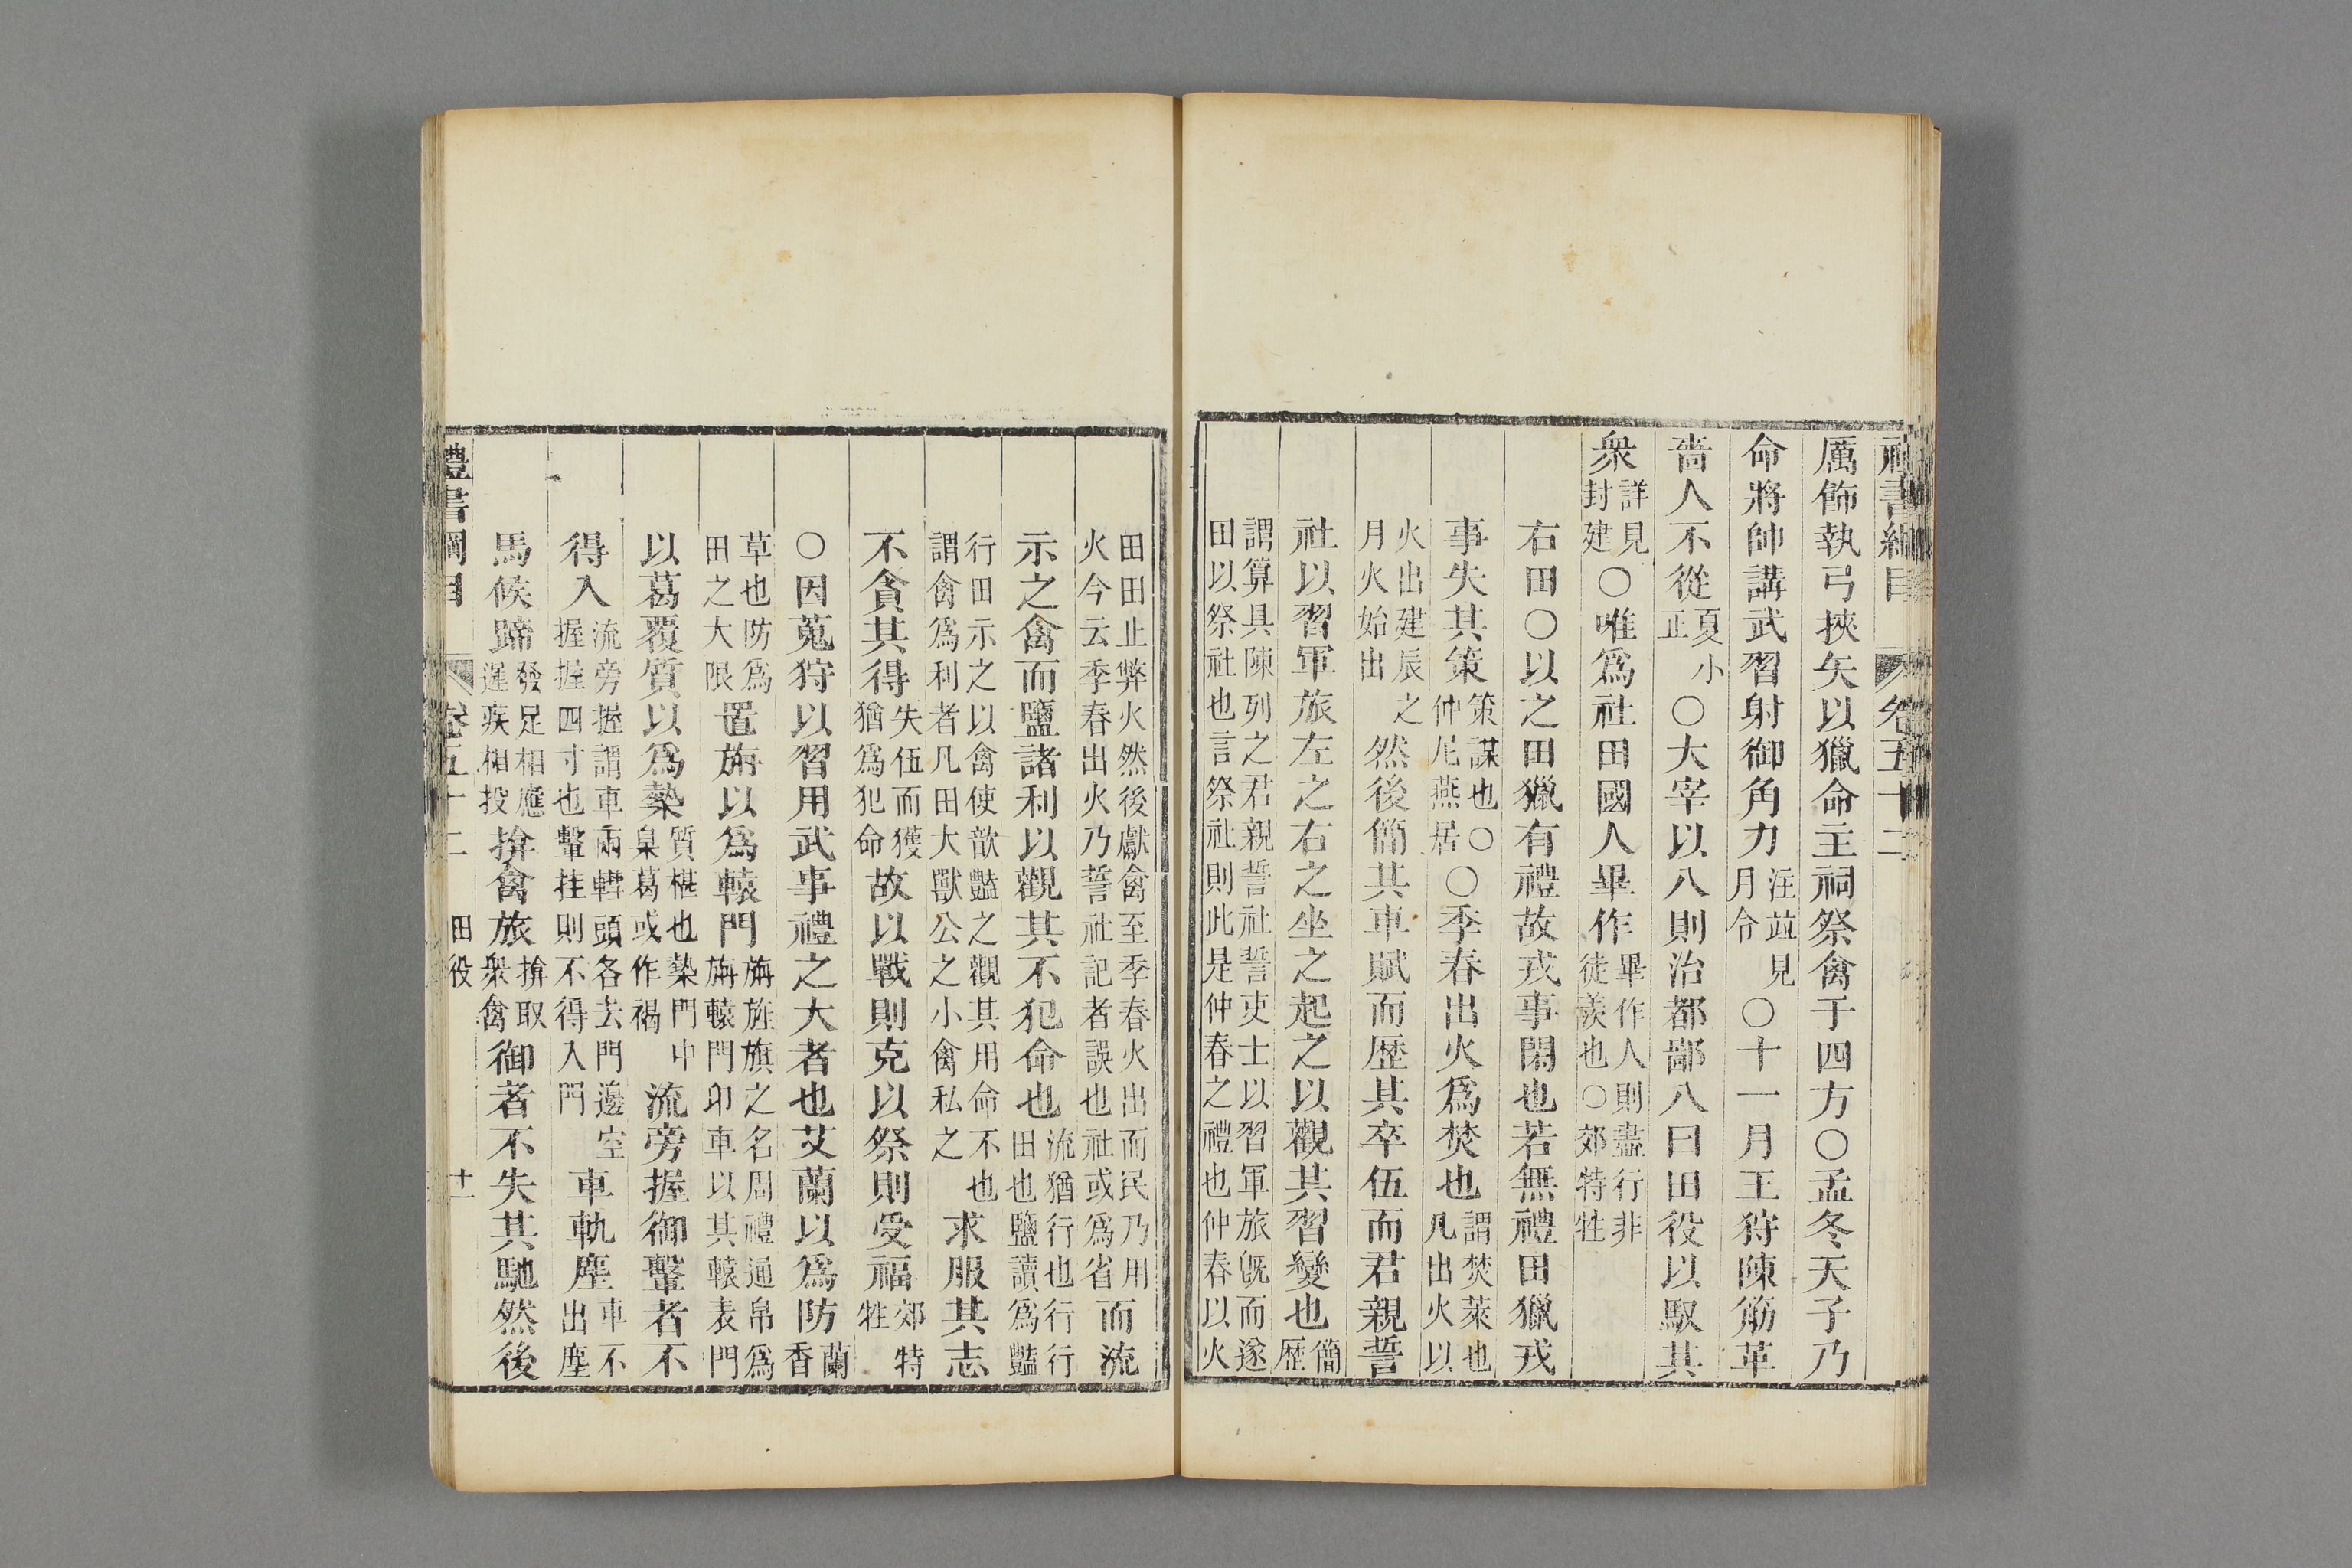 禮書綱目 卷五十二
厲飾執弓挾矢以獵命主祠祭禽于四方○孟冬天子乃
命將帥講武習射御角力注並見月令○十一月王狩陳筋革
嗇人不從夏小正○大宰以八則治都鄙八曰田役以馭其
衆詳見封建○唯爲社田國人畢作畢作人則盡行非徒羨也○郊特牲
右田○以之田獵有禮故戎事閑也若無禮田獵戎
事失其策策謀也○仲尼燕居○季春出火爲焚也謂焚萊也凡出火以
火出建辰之月火始出然後簡其車賦而歷其卒伍而君親誓
社以習軍旅左之右之坐之起之以觀其習變也簡歷
謂算具陳列之君親誓社誓吏士以習軍旅旣而遂田以祭社也言祭社則此是仲春之禮也仲春以火
田田止弊火然後獻禽至季春火出而民乃用火今云季春出火乃誓社記者誤也社或爲省而流
示之禽而鹽諸利以觀其不犯命也流猶行也行行田也鹽讀爲豔
行田示之以禽使歆豔之觀其用命不也謂禽爲利者凡田大獸公之小禽私之求服其志
不貪其得失伍而獲猶爲犯命故以戰則克以祭則受福郊特牲
○因蒐狩以習用武事禮之大者也艾蘭以爲防蘭香
草也防爲田之大限置旃以爲轅門旃旌旗之名周禮通帛爲旃轅門卬車以其轅表門
以葛覆質以爲槷質椹也槷門中臬葛或作褐流旁握御轚者不
得入流旁握謂車兩轊頭各去門邊空握握四寸也轚挂則不得入門車軌塵車不出塵
馬候蹄發足相應遲疾相投揜禽旅揜取衆禽御者不失其馳然後
禮書綱目 卷五十二 田役 十一